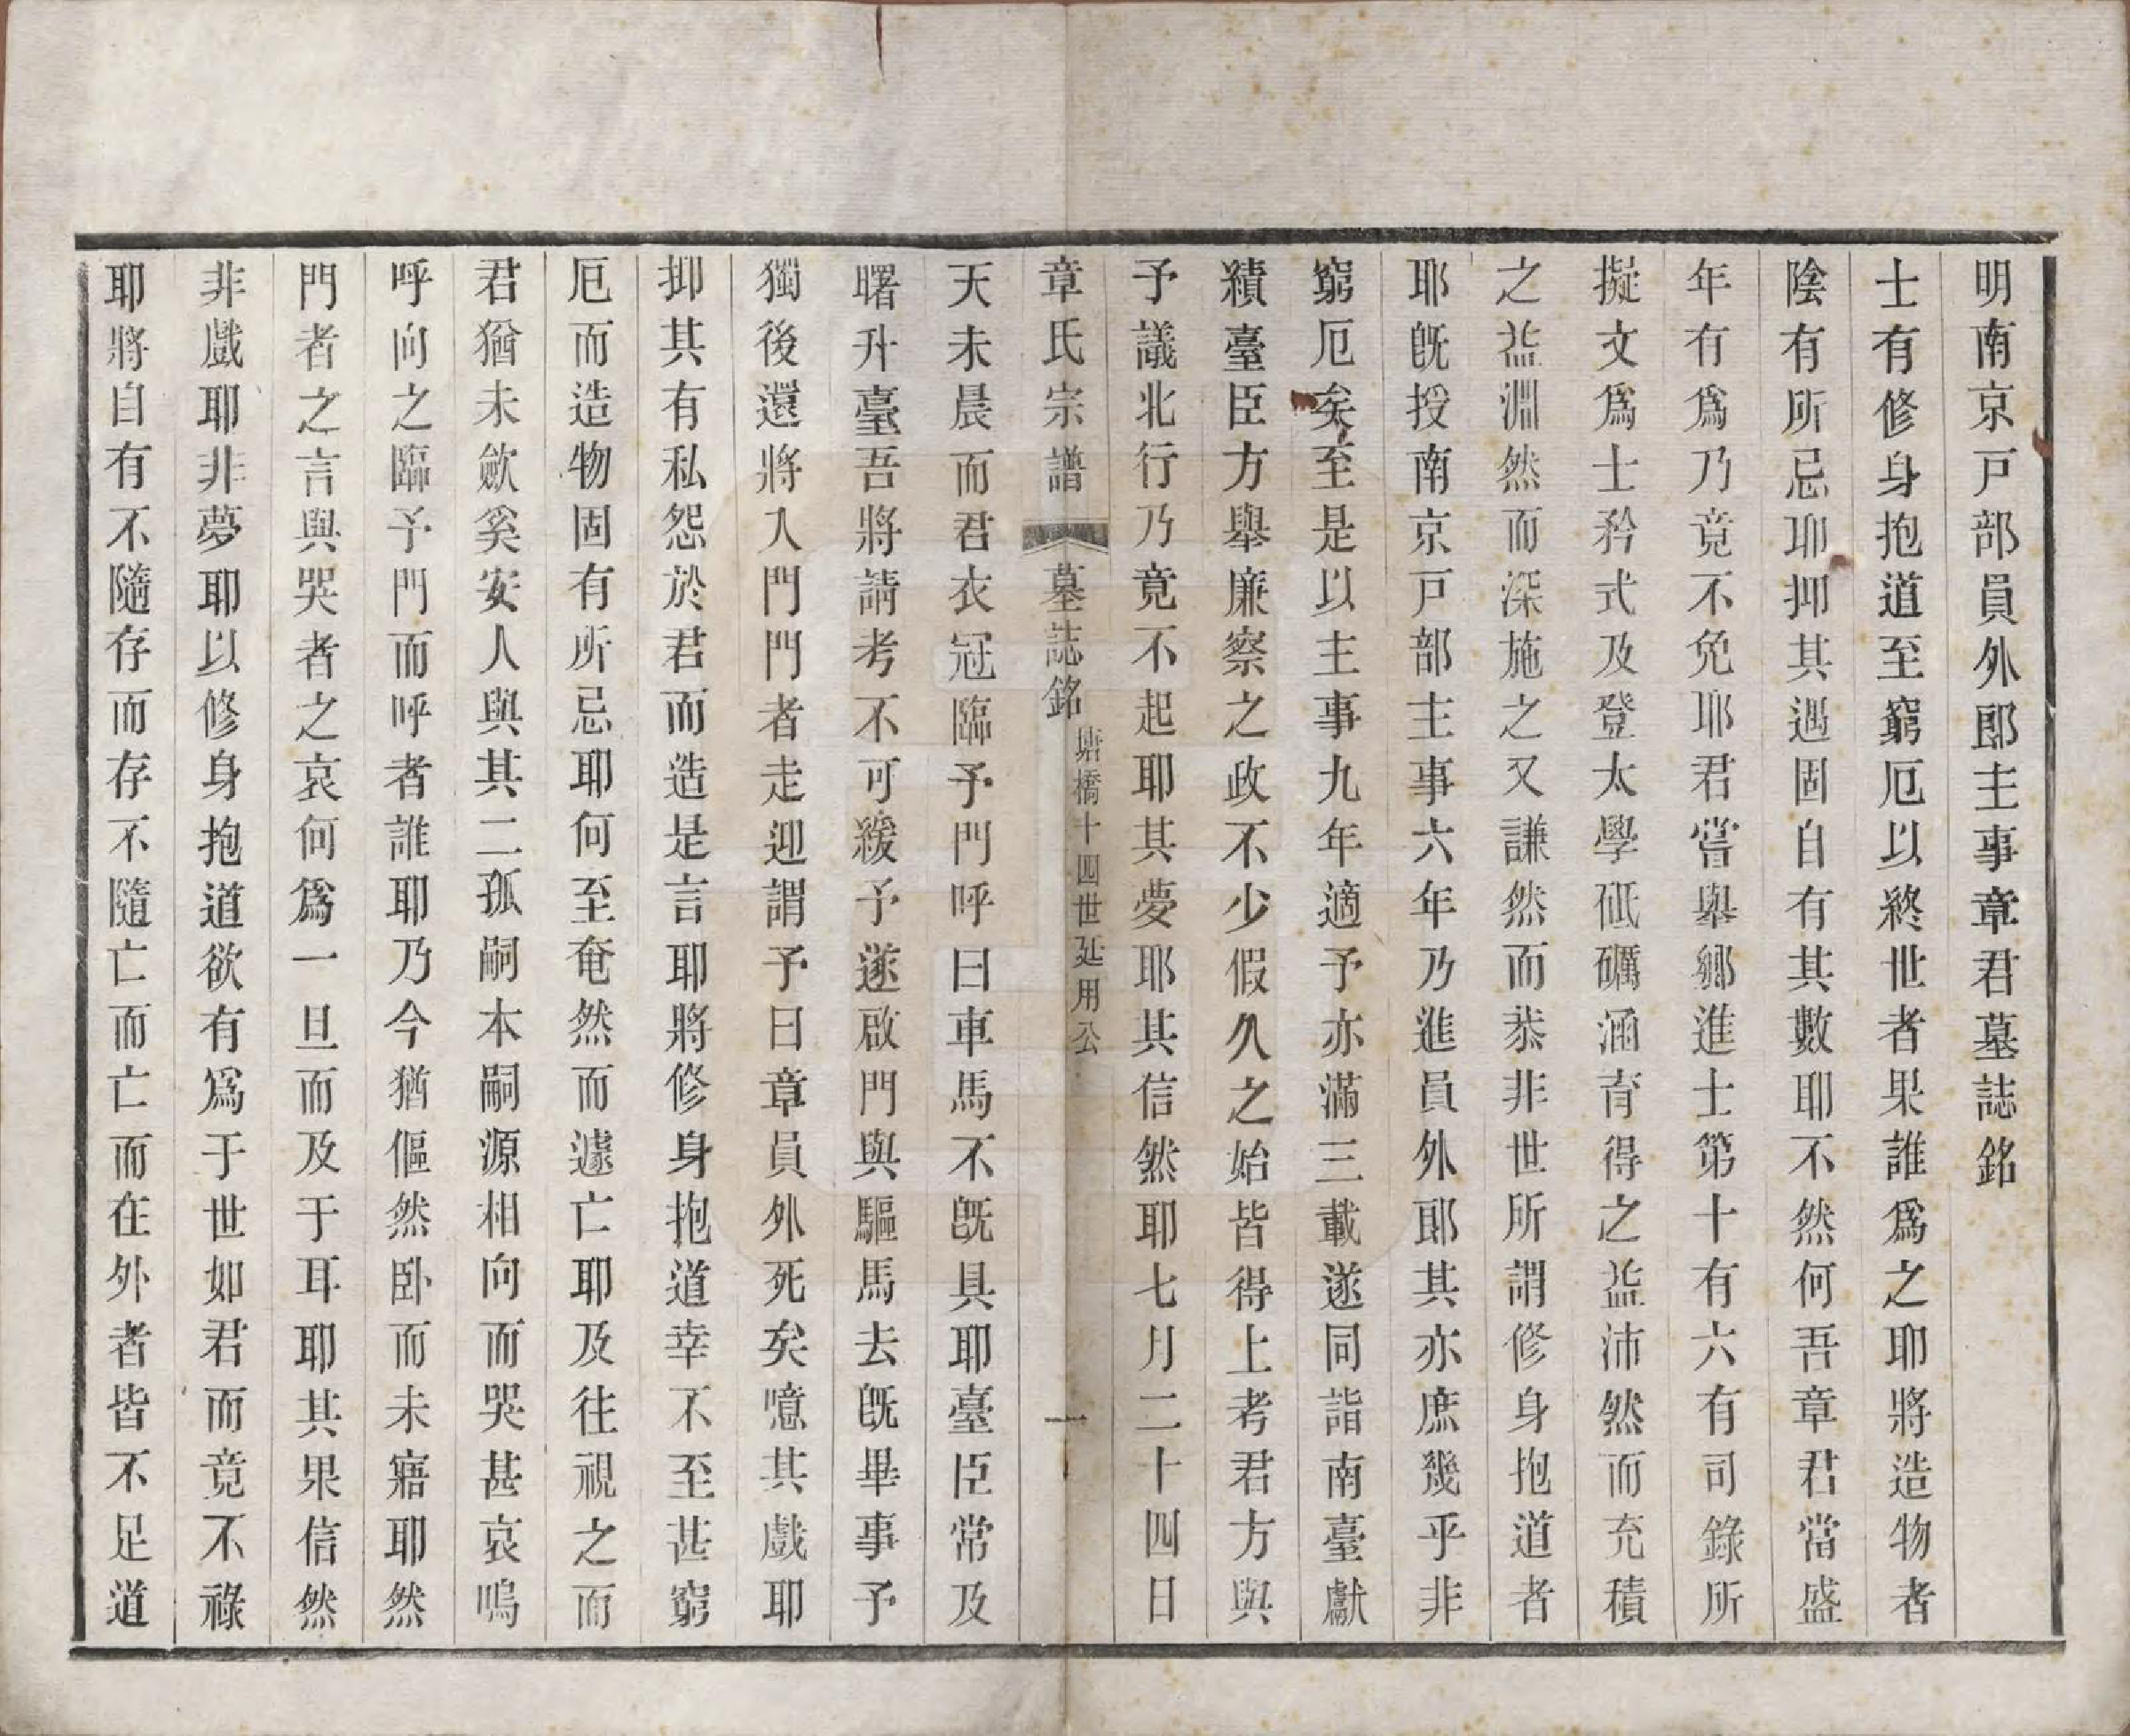 明南京戸部員外郎主事章君墓誌銘
士有修身抱道至窮厄以終世者果誰爲之耶將造物者
陰有所忌耶抑其遇固自有其數耶不然何吾章君當盛
年有爲乃竟不免耶君嘗舉鄉進士第十有六有司錄所
擬文爲士矜式及登太學砥礪涵育得之益沛然而充積
之益淵然而深施之又謙然而恭非世所謂修身抱道者
耶旣授南京戸部主事六年乃進員外郎其亦庶幾乎非
窮厄矣至是以主事九年適予亦滿三載遂同詣南臺獻
績臺臣方舉廉察之政不少假久之始皆得上考君方與
予議北行乃竟不起耶其夢耶其信然耶七月二十四日
章氏宗譜 墓誌銘 塘橋十四世延用公 一
天未晨而君衣冠臨予門呼曰車馬不旣具耶臺臣常及
曙升臺吾將請考不可緩予遂啟門與驅馬去旣畢事予
獨後還將入門門者走迎謂予曰章員外死矣噫其戲耶
抑其有私怨於君而造是言耶將修身抱道幸不至甚窮
厄而造物固有所忌耶何至奄然而遽亡耶及往視之而
君猶未歛奚安人與其二孤嗣本嗣源相向而哭甚哀嗚
呼向之臨予門而呼者誰耶乃今猶傴然卧而未寤耶然
門者之言與哭者之哀何爲一旦而及于耳耶其果信然
非戲耶非夢耶以修身抱道欲有爲于世如君而竟不祿
耶將自有不隨存而存不隨亡而亡而在外者皆不足道